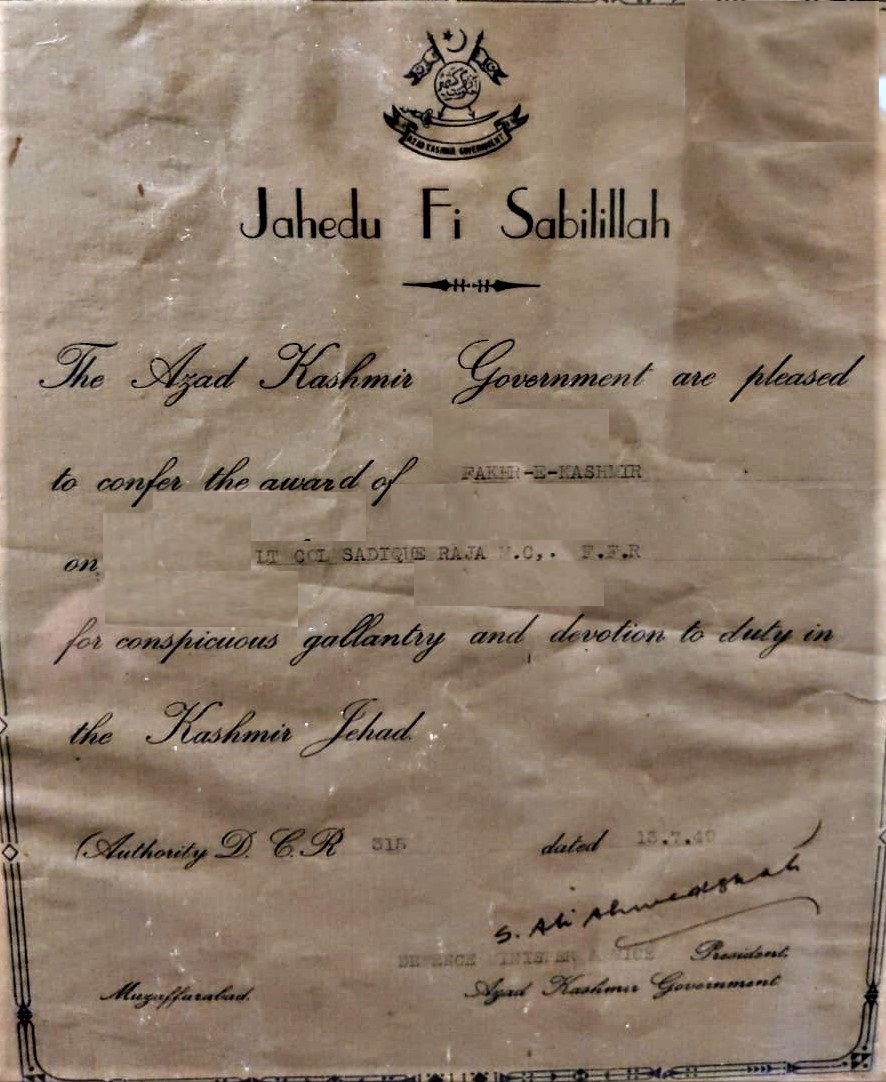 AZAD KASHMIR GOVERNMENT
Jahedu Fi Sabilillah
The Azad Kashmir Government are pleased
to confer the award of FAKHR-E-KASHMIR
on LT COL SADIQUE RAJA M.C,. F.F.R
for conspicuous gallantry and devotion to duty in
the Kashmir Jehad.
(Authority D. C. R 315 dated 13.7.49
S. Ali Ahmed Shah
DEFENCE MINISTER & VICE President.
Muzaffarabad. Azad Kashmir Government